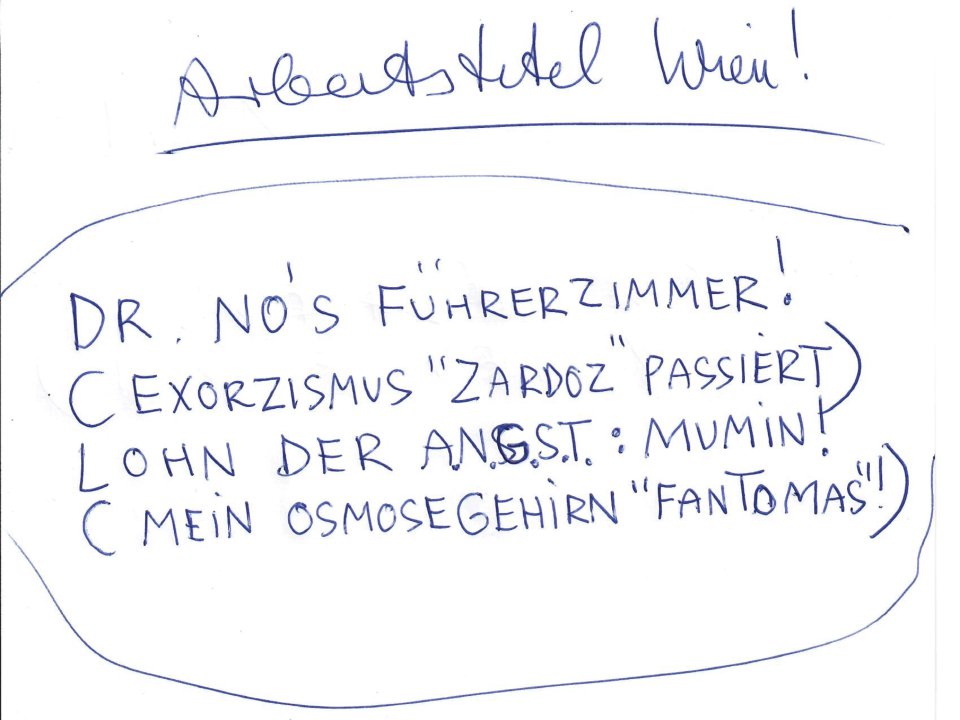 Arbeitstitel Wien!
DR. NÓ'S FÜHRERZIMMER!
(EXORZISMUS "ZARDOZ" PASSIERT)
LOHN DER A.N.G.S.T.: MUMIN!
(MEIN OSMOSEGEHIRN "FANTOMAS"!)